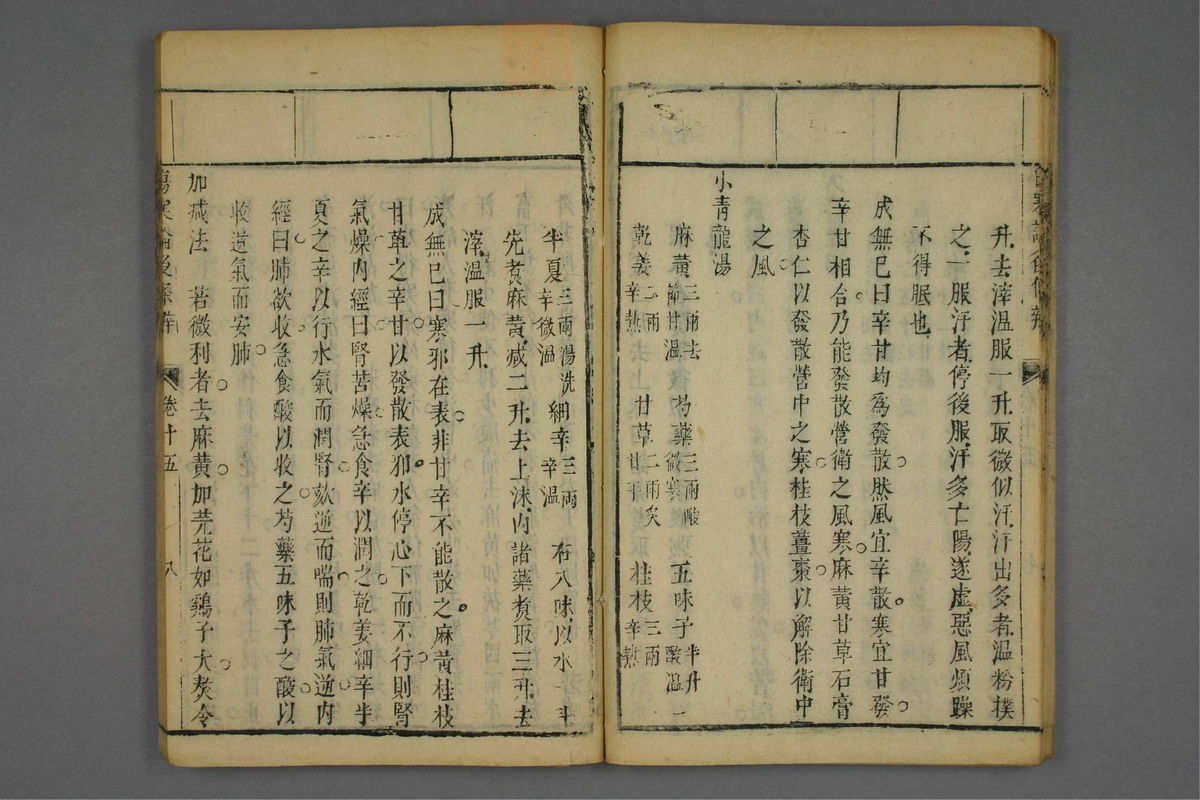 升去滓溫服一升取微似汗汗出多者溫粉撲
之一服汗者停後服汗多亡陽遂虛惡風煩躁
不得眠也
成無已曰辛甘均為發散然風宜辛散寒宜甘發
辛甘相合乃能發散營衛之風寒麻黃甘草石膏
杏仁以發散營中之寒桂枝薑棗以解除衛中
之風
小青龍湯
麻黃三兩去節甘溫 芍藥三兩酸微寒 五味子半升酸溫
乾姜二兩辛熱 甘草二兩炙甘平 桂枝三兩辛熱
半夏三兩湯洗辛微溫 細辛三兩辛溫 右八味以水一斗
先煮麻黃減二升去上沫內諸藥煑取三升去
滓溫服一升
成無已曰寒邪在表非甘辛不能散之麻黃桂枝
甘草之辛甘以發散表邪水停心下而不行則腎
氣燥內經曰腎苦燥急食辛以潤之乾姜細辛半
夏之辛以行水氣而潤腎欬逆而喘則肺氣逆內
經曰肺欲收急食酸以收之芍藥五味子之酸以
收逆氣而安肺
加减法 若微利者去麻黃加芫花如鷄子大熬令
傷寒論後條辨 卷十五 八